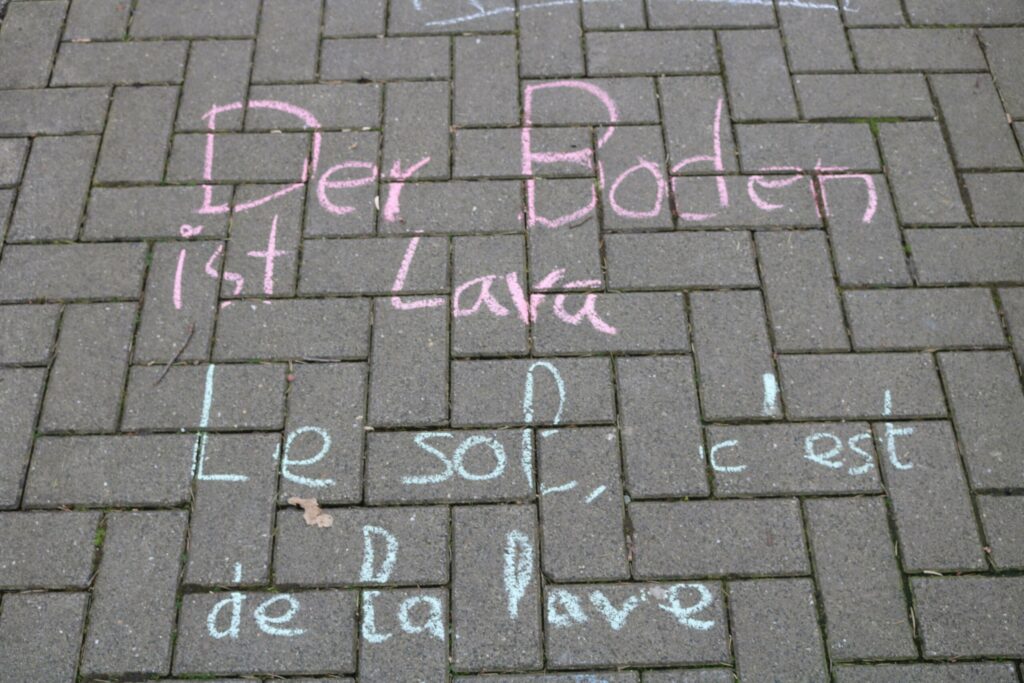 Der Boden
ist Lava
Le sol, c'est
de la lave